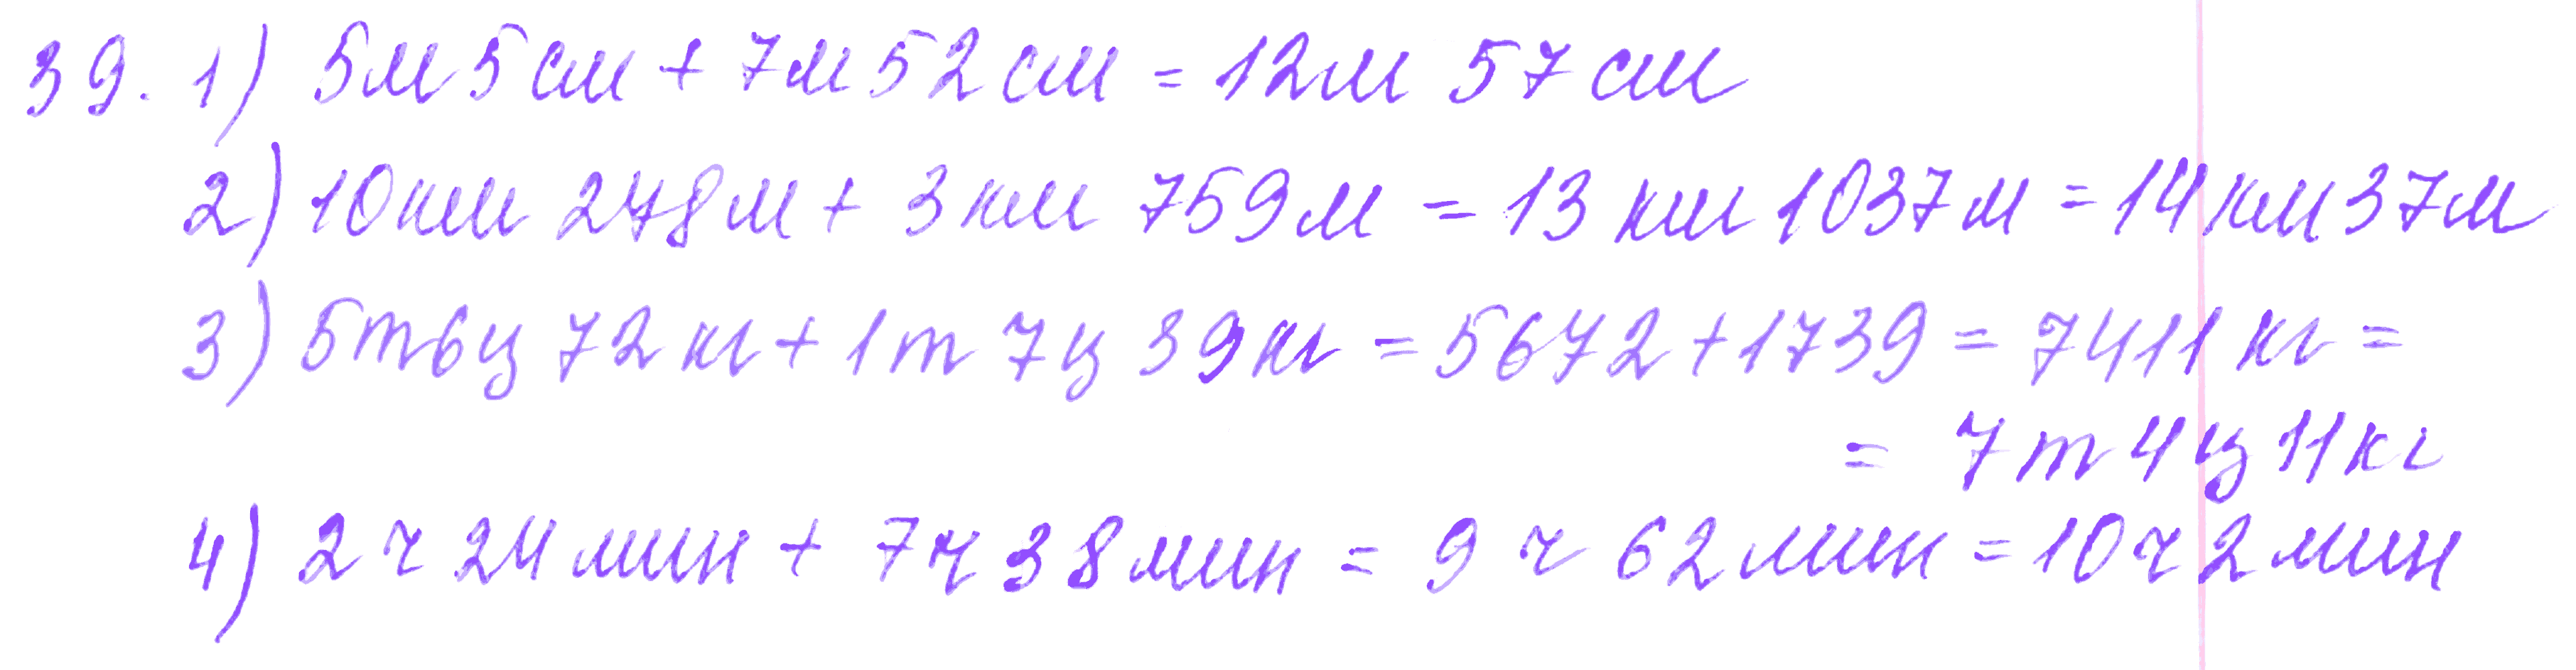 39. 1) 5м 5см + 7м 52см = 12м 57см
2) 10км 278м + 3км 759м = 13км 1037м = 14км 37м
3) 5т 6ц 72кг + 1т 7ц 39кг = 5672 + 1739 = 7411кг =
= 7т 4ц 11кг
4) 2ч 24мин + 7ч 38мин = 9ч 62мин = 10ч 2мин